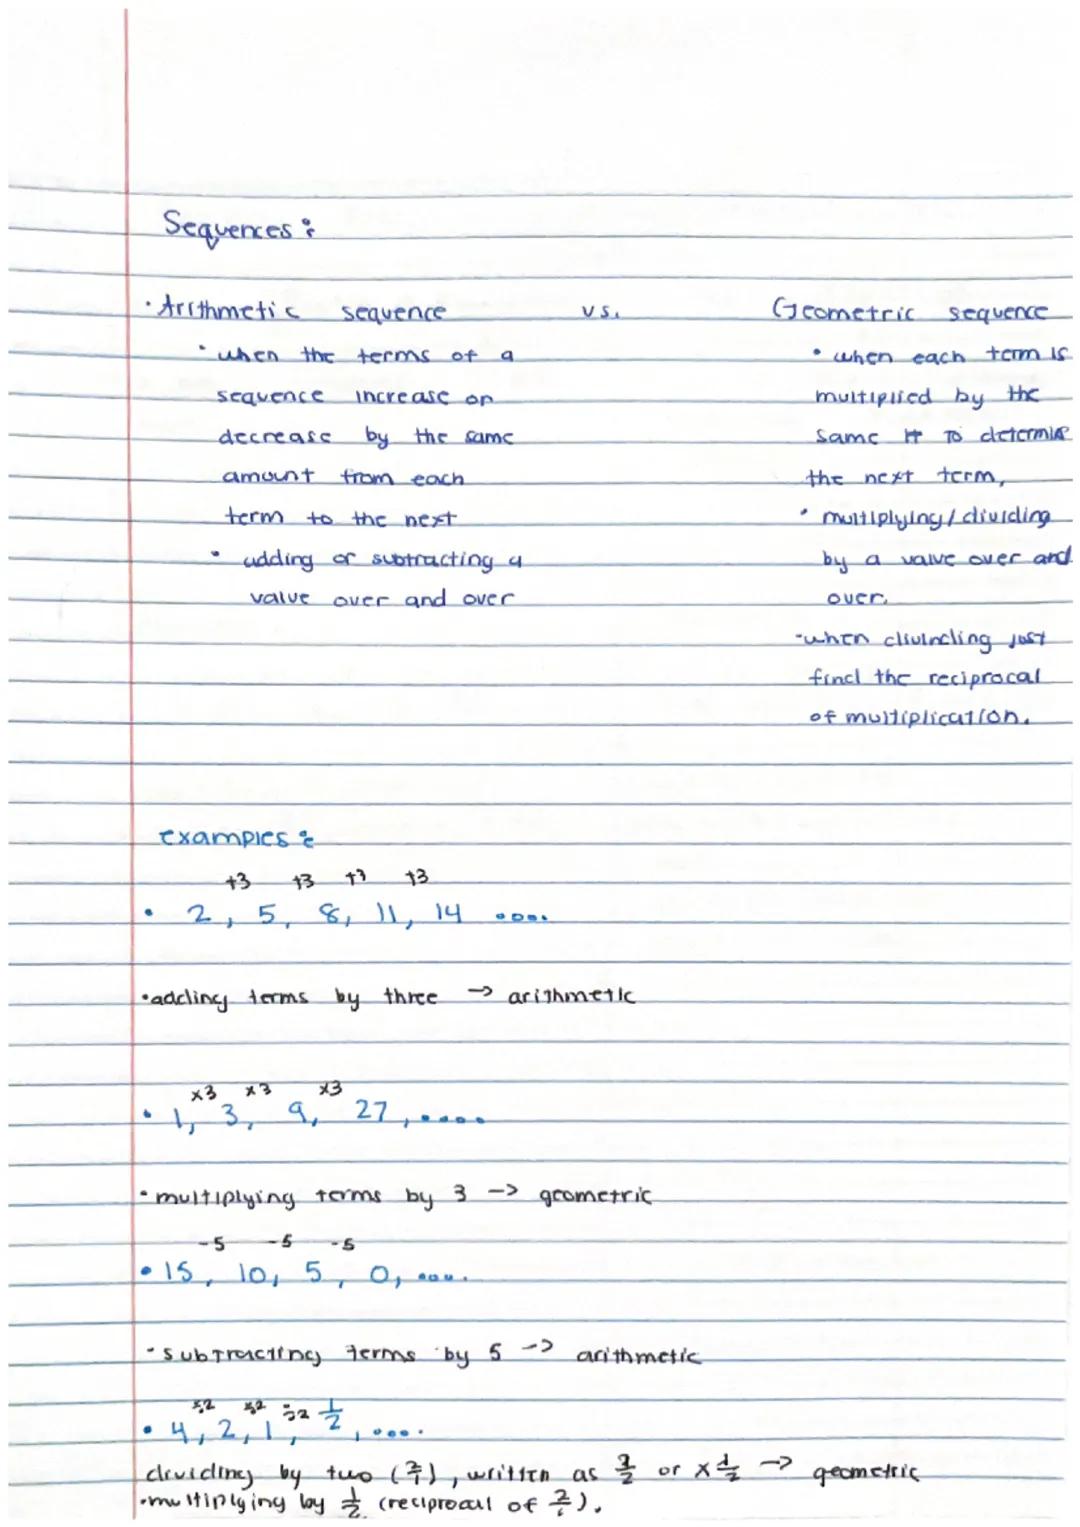 Sequences:
• Arithmetic sequence vs. Geometric sequence
• when the terms of a
sequence increase or
decrease by the same
amount from each
term to the next
• adding or subtracting a
value over and over
• when each term is
multiplied by the
same # to determine
the next term,
• multiplying/dividing
by a value over and
over.
-when divinding just
find the reciprocal
of multiplication.
examples:
+3 +3 +3 +3
• 2, 5, 8, 11, 14 ....
•adding terms by three → arithmetic
x3 x3 x3
• 1, 3, 9, 27, ....
•multiplying terms by 3 -> geometric
-5 -5 -5
• 15, 10, 5, 0, ....
•subtracting terms by 5 -> arithmetic
÷2 ÷2 ÷2
• 4, 2, 1, 1/2, ....
dividing by two (2/1), written as or x 1/2 -> geometric
•multiplying by 1/2 (reciprocal of 2/1).